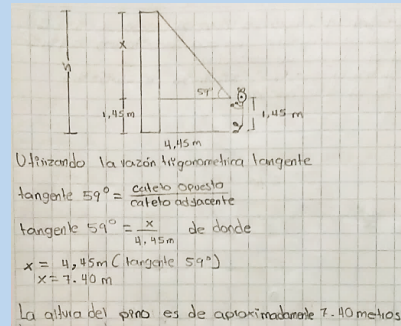 h
x
59°
1,45 m
1,45 m
4,45m
Utilizando la razón trigonometrica tangente
tangente 59° = cateto opuesto
cateto adyacente
tangente 59° = x
4,45m
de donde
x = 4,45m (tangente 59°)
x = 7.40 m
La altura del pino es de aproximadamente 7.40 metros